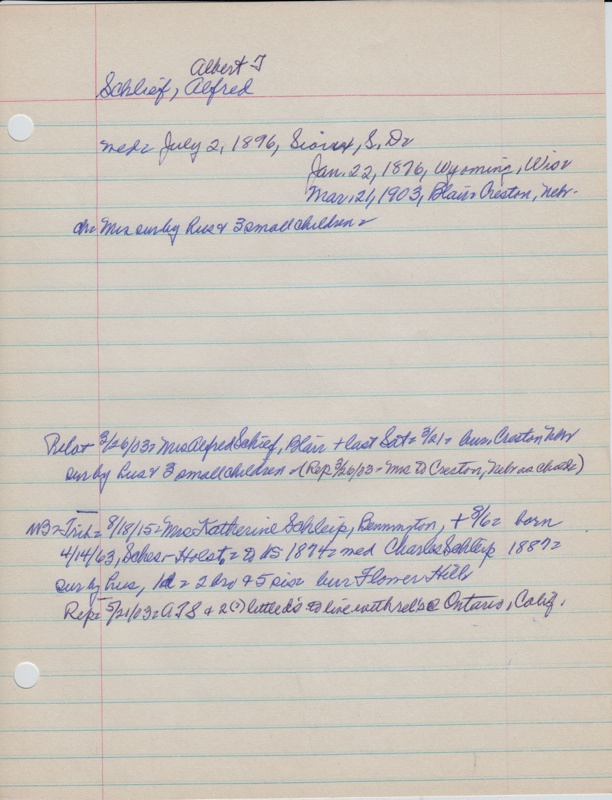 Albert T
Schlief, Alfred
med= July 2, 1896, Sioux, S. D=
Jan. 22, 1876, Wyoming, Wis=
Mar. 21, 1903, Blair= Creston, Nebr-
ch= Mrs sur by hus & 3 small children=
Pilot 3/26/03= Mrs Alfred Schief, Blair + last Sat= 3/21= bur. Creston Nebr
sur by hus & 3 small children = (Rep 3/26/03= Mrs to Creston, Nebr as a
NB= Trib= 8/18/15= Mrs Katherine Schleip, Bennington, + 8/6= born
4/14/63, Schles- Holst, = to US 1874= med Charles Schleip 1887=
sur by hus, 1d = 2 bro & 5 sis= bur Flower Hill
Rep= 5/21/03= ATS & 2(?) little d's to live with rel's @ Ontario, Calif.